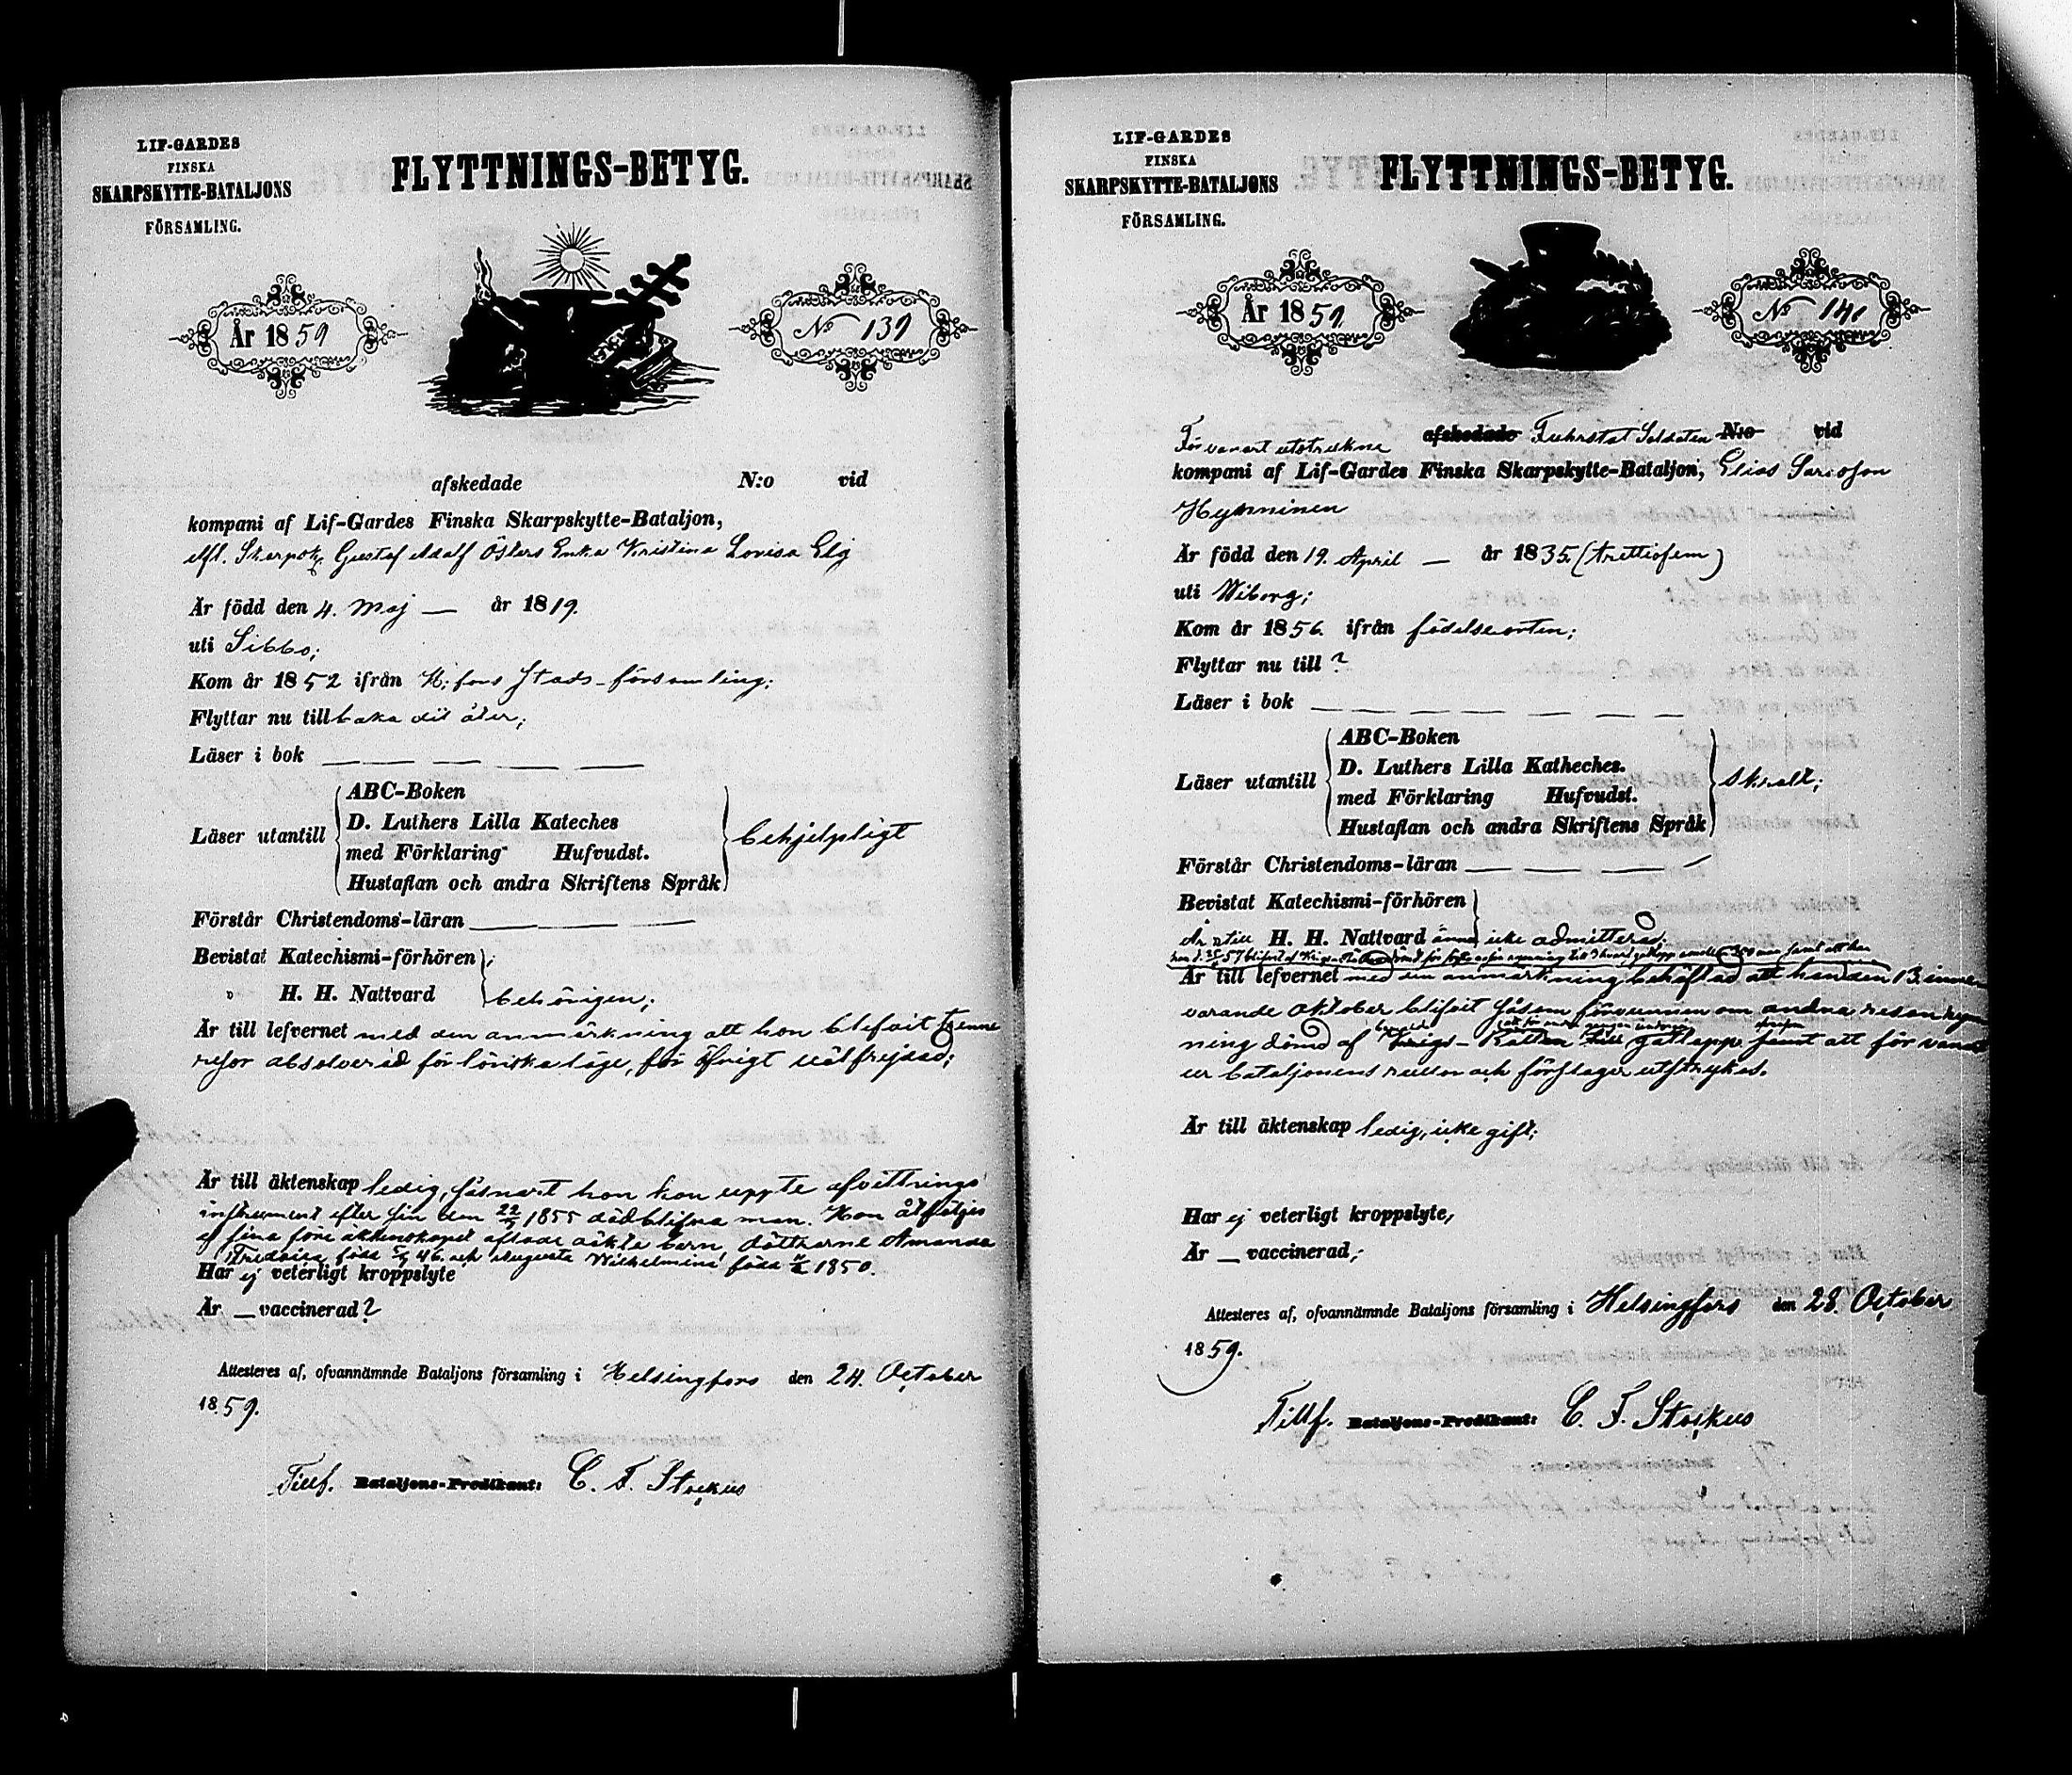 LIF-GARDES
FINSKA
SKARPSKYTTE-BATALJONS
FÖRSAMLING.
FLYTTNINGS-BETYG.
År 1859
No 139
afskedade N:o vid
kompani af Lif-Gardes Finska Skarpskytte-Bataljon,
Afl. Skarpsk. Gustaf Adolf Östers Enka Kristina Lovisa Elg
Är född den 4. Maj — år 1819.
uti Sibbo;
Kom år 1852 ifrån H:fors Stads-församling;
Flyttar nu tillbaka dit åter;
Läser i bok — — — — —
Läser utantill
ABC-Boken
D. Luthers Lilla Kateches
med Förklaring Hufvudst.
Hustaflan och andra Skriftens Språk
behjelpligt
Förstår Christendoms-läran — — — —
Bevistat Katechismi-förhören
" H. H. Nattvard behörigen;
Är till lefvernet med den anmärkning att hon blifvit trenne
resor absolverad för lönskaläge, för öfrigt välfrejdad;
Är till äktenskap ledig, såsnart hon kon uppte afvittrings
instrument efter sin den 22/7 1855 död blifna man. Hon åtföljes
af sina före äktenskapet aflade oäkta barn, döttrarne Amanda
Fredrika, född 46. och Augusta Wilhelmina född 1850.
Har ej veterligt kroppslyte
Är — vaccinerad?
Attesteres af, ofvannämnde Bataljons församling i Helsingfors den 24. October
1859.
Tillf. Bataljons-Predikant: C. F. Stockus
LIF-GARDES
FINSKA
SKARPSKYTTE-BATALJONS
FÖRSAMLING.
FLYTTNINGS-BETYG.
År 1859.
No 141
Förvarart utstrukne afskedade Fuhrstat Soldaten N:o vid
kompani af Lif-Gardes Finska Skarpskytte-Bataljon, Elias
Hynninen
Är född den 19. April — år 1835. (trettiofem)
uti Wiborg;
Kom år 1856. ifrån födelseorten;
Flyttar nu till?
Läser i bok — — — — — —
Läser utantill
ABC-Boken
D. Luthers Lilla Katheches.
med Förklaring Hufvudst.
Hustaflan och andra Skriftens Språk
skralt;
Förstår Christendoms-läran — — — —
Bevistat Katechismi-förhören
Är till H. H. Nattvard ännu icke admitterad;
Är till lefvernet med den anmärkning behäftad att han den 13. inne
varande Oktober blifvit såsom förvunnen om andra resan rym
ning dömd af Krigs-Rätten till gatlopp samt att för vanart
ur bataljonens rullor och förslager utstrykas.
Är till äktenskap ledig, icke gift;
Har ej veterligt kroppslyte,
Är — vaccinerad;
Attesteres af, ofvannämnde Bataljons församling i Helsingfors den 28. October
1859.
Tillf. Bataljons-Predikant: C. F. Stockus